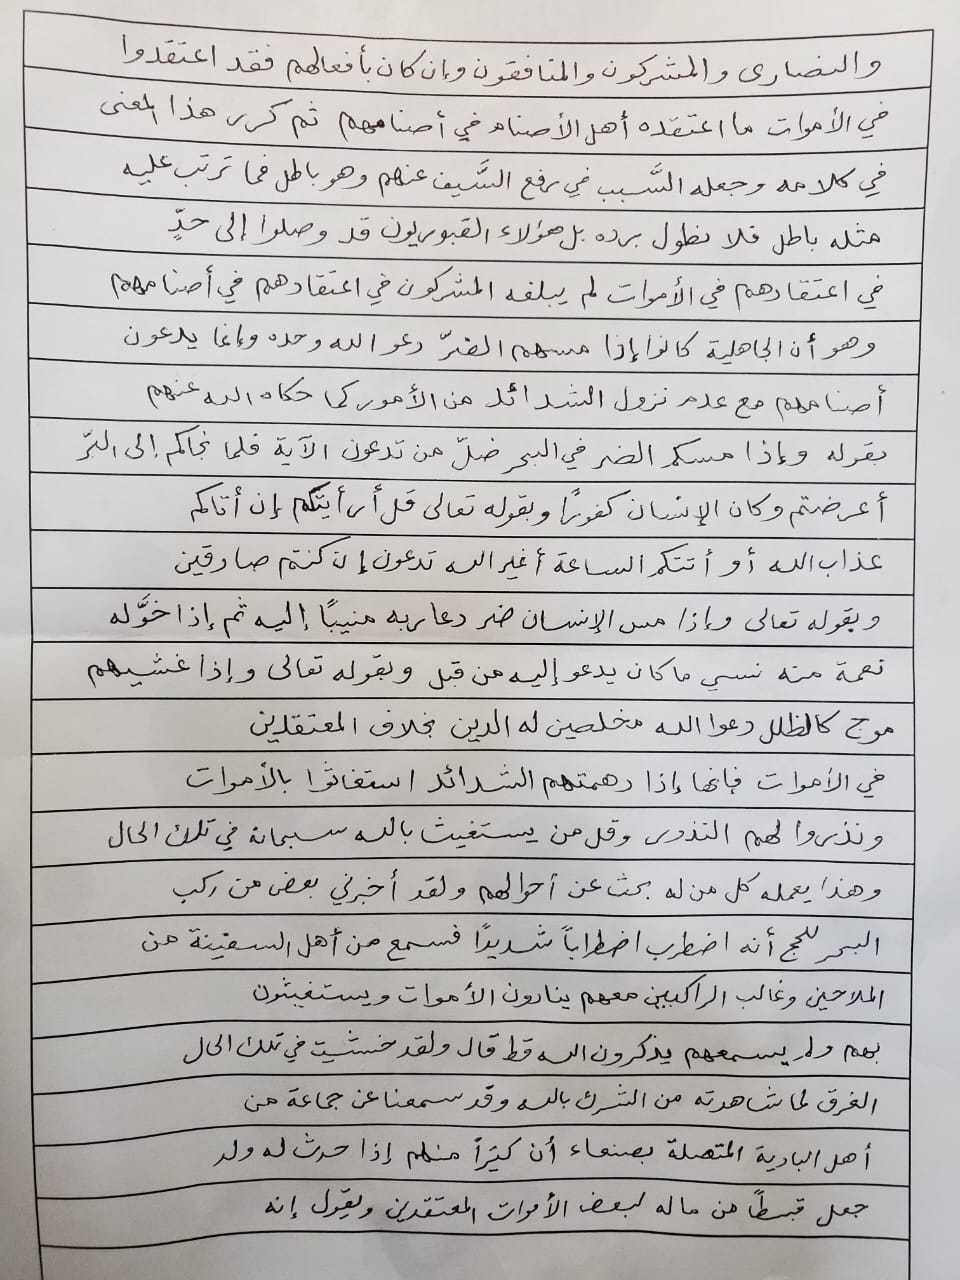 والنصارى والمشركون والمنافقون وإن كان بأفعالهم فقد اعتقدوا
في الأموات ما اعتقده أهل الأصنام في أصنامهم ثم كرر هذا المعنى
في كلامه وجعله السَّبب في رفع السَّيف عنهم وهو باطل فما ترتب عليه
مثله باطل فلا نطول برده بل هؤلاء القبوريون قد وصلوا إلى حدٍّ
في اعتقادهم في الأموات لم يبلغه المشركون في اعتقادهم في أصنامهم
وهو أن الجاهلية كانوا إذا مسهم الضرّ دعو الله وحده وإنما يدعون
أصنامهم مع عدم نزول الشدائد من الأمور كما حكاه الله عنهم
بقوله وإذا مسكم الضر في البحر ضلّ من تدعون الآية فلما نجاكم إلى البرّ
أعرضتم وكان الإنسان كفورًا وبقوله تعالى قل أرأيتكم إن أتاكم
عذاب الله أو أتتكم الساعة أغير الله تدعون إن كنتم صادقين
وبقوله تعالى وإذا مس الإنسان ضر دعا ربه منيبًا إليه ثم إذا خوَّله
نعمة منه نسي ما كان يدعو إليه من قبل وبقوله تعالى وإذا غشيهم
موج كالظلل دعوا الله مخلصين له الدين بخلاف المعتقدين
في الأموات فإنها إذا دهمتهم الشدائد استغاثوا بالأموات
ونذروا لهم النذور وقل من يستغيث بالله سبحانه في تلك الحال
وهذا يعمله كل من له بحث عن أحوالهم ولقد أخبرني بعض من ركب
البحر للحج أنه اضطرب اضطراباً شديدًا فسمع من أهل السفينة من
الملاحين وغالب الراكبين معهم ينادون الأموات ويستغيثون
بهم ولم يسمعهم يذكرون الله قط قال ولقد خشيت في تلك الحال
الغرق لما شاهدته من الشرك بالله وقد سمعنا عن جماعة من
أهل البادية المتصلة بصنعاء أن كثيرًا منهم إذا حدث له ولد
جعل قسطًا من ماله لبعض الأموات المعتقدين ويقول إنه